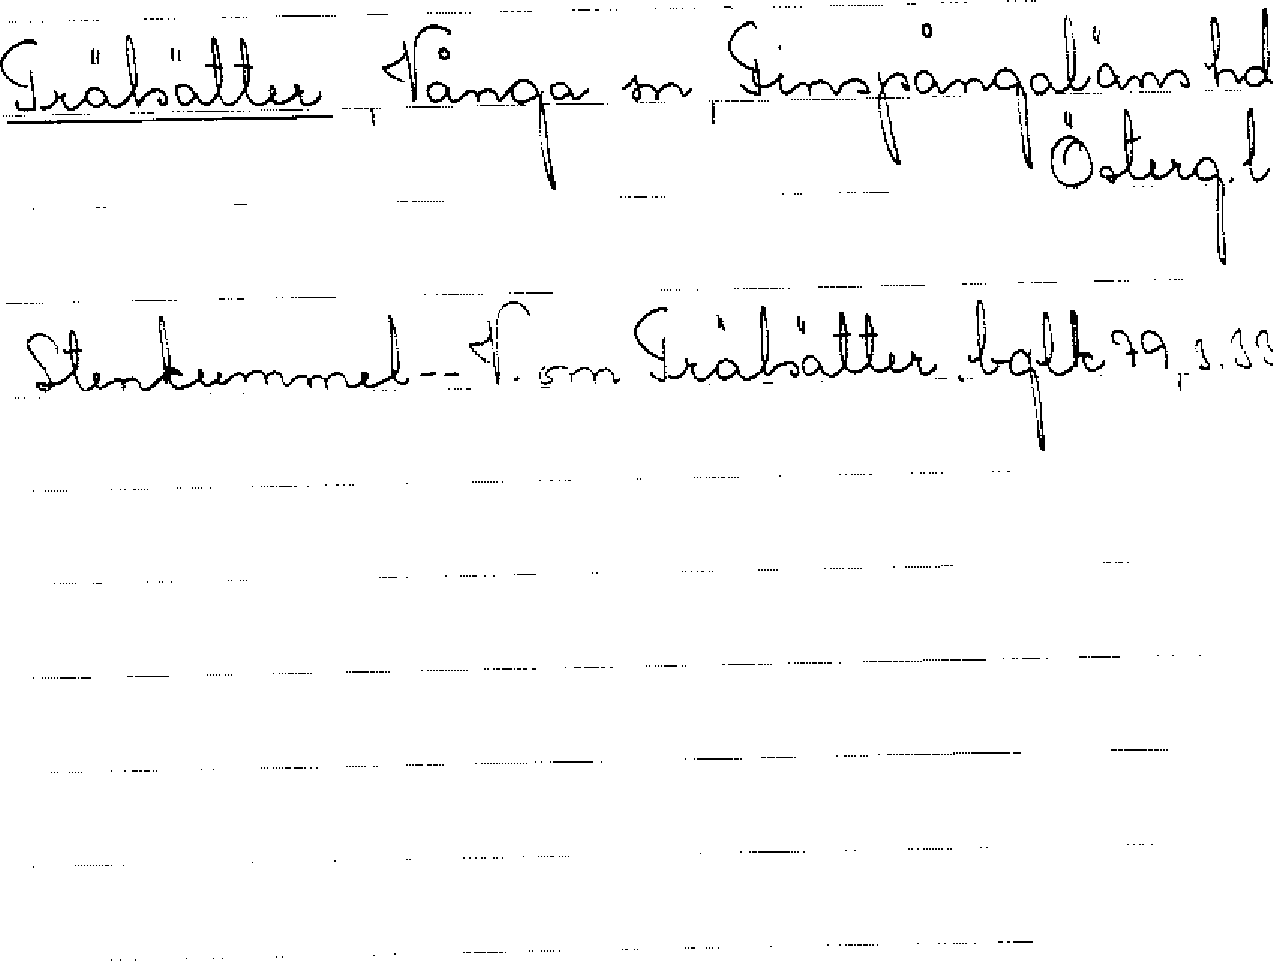 Frälsätter, Vånga sn, Finspångaläns hd
Österg. l
Stenkummel -- V. om Frälsätter. bglk 79, 3.33